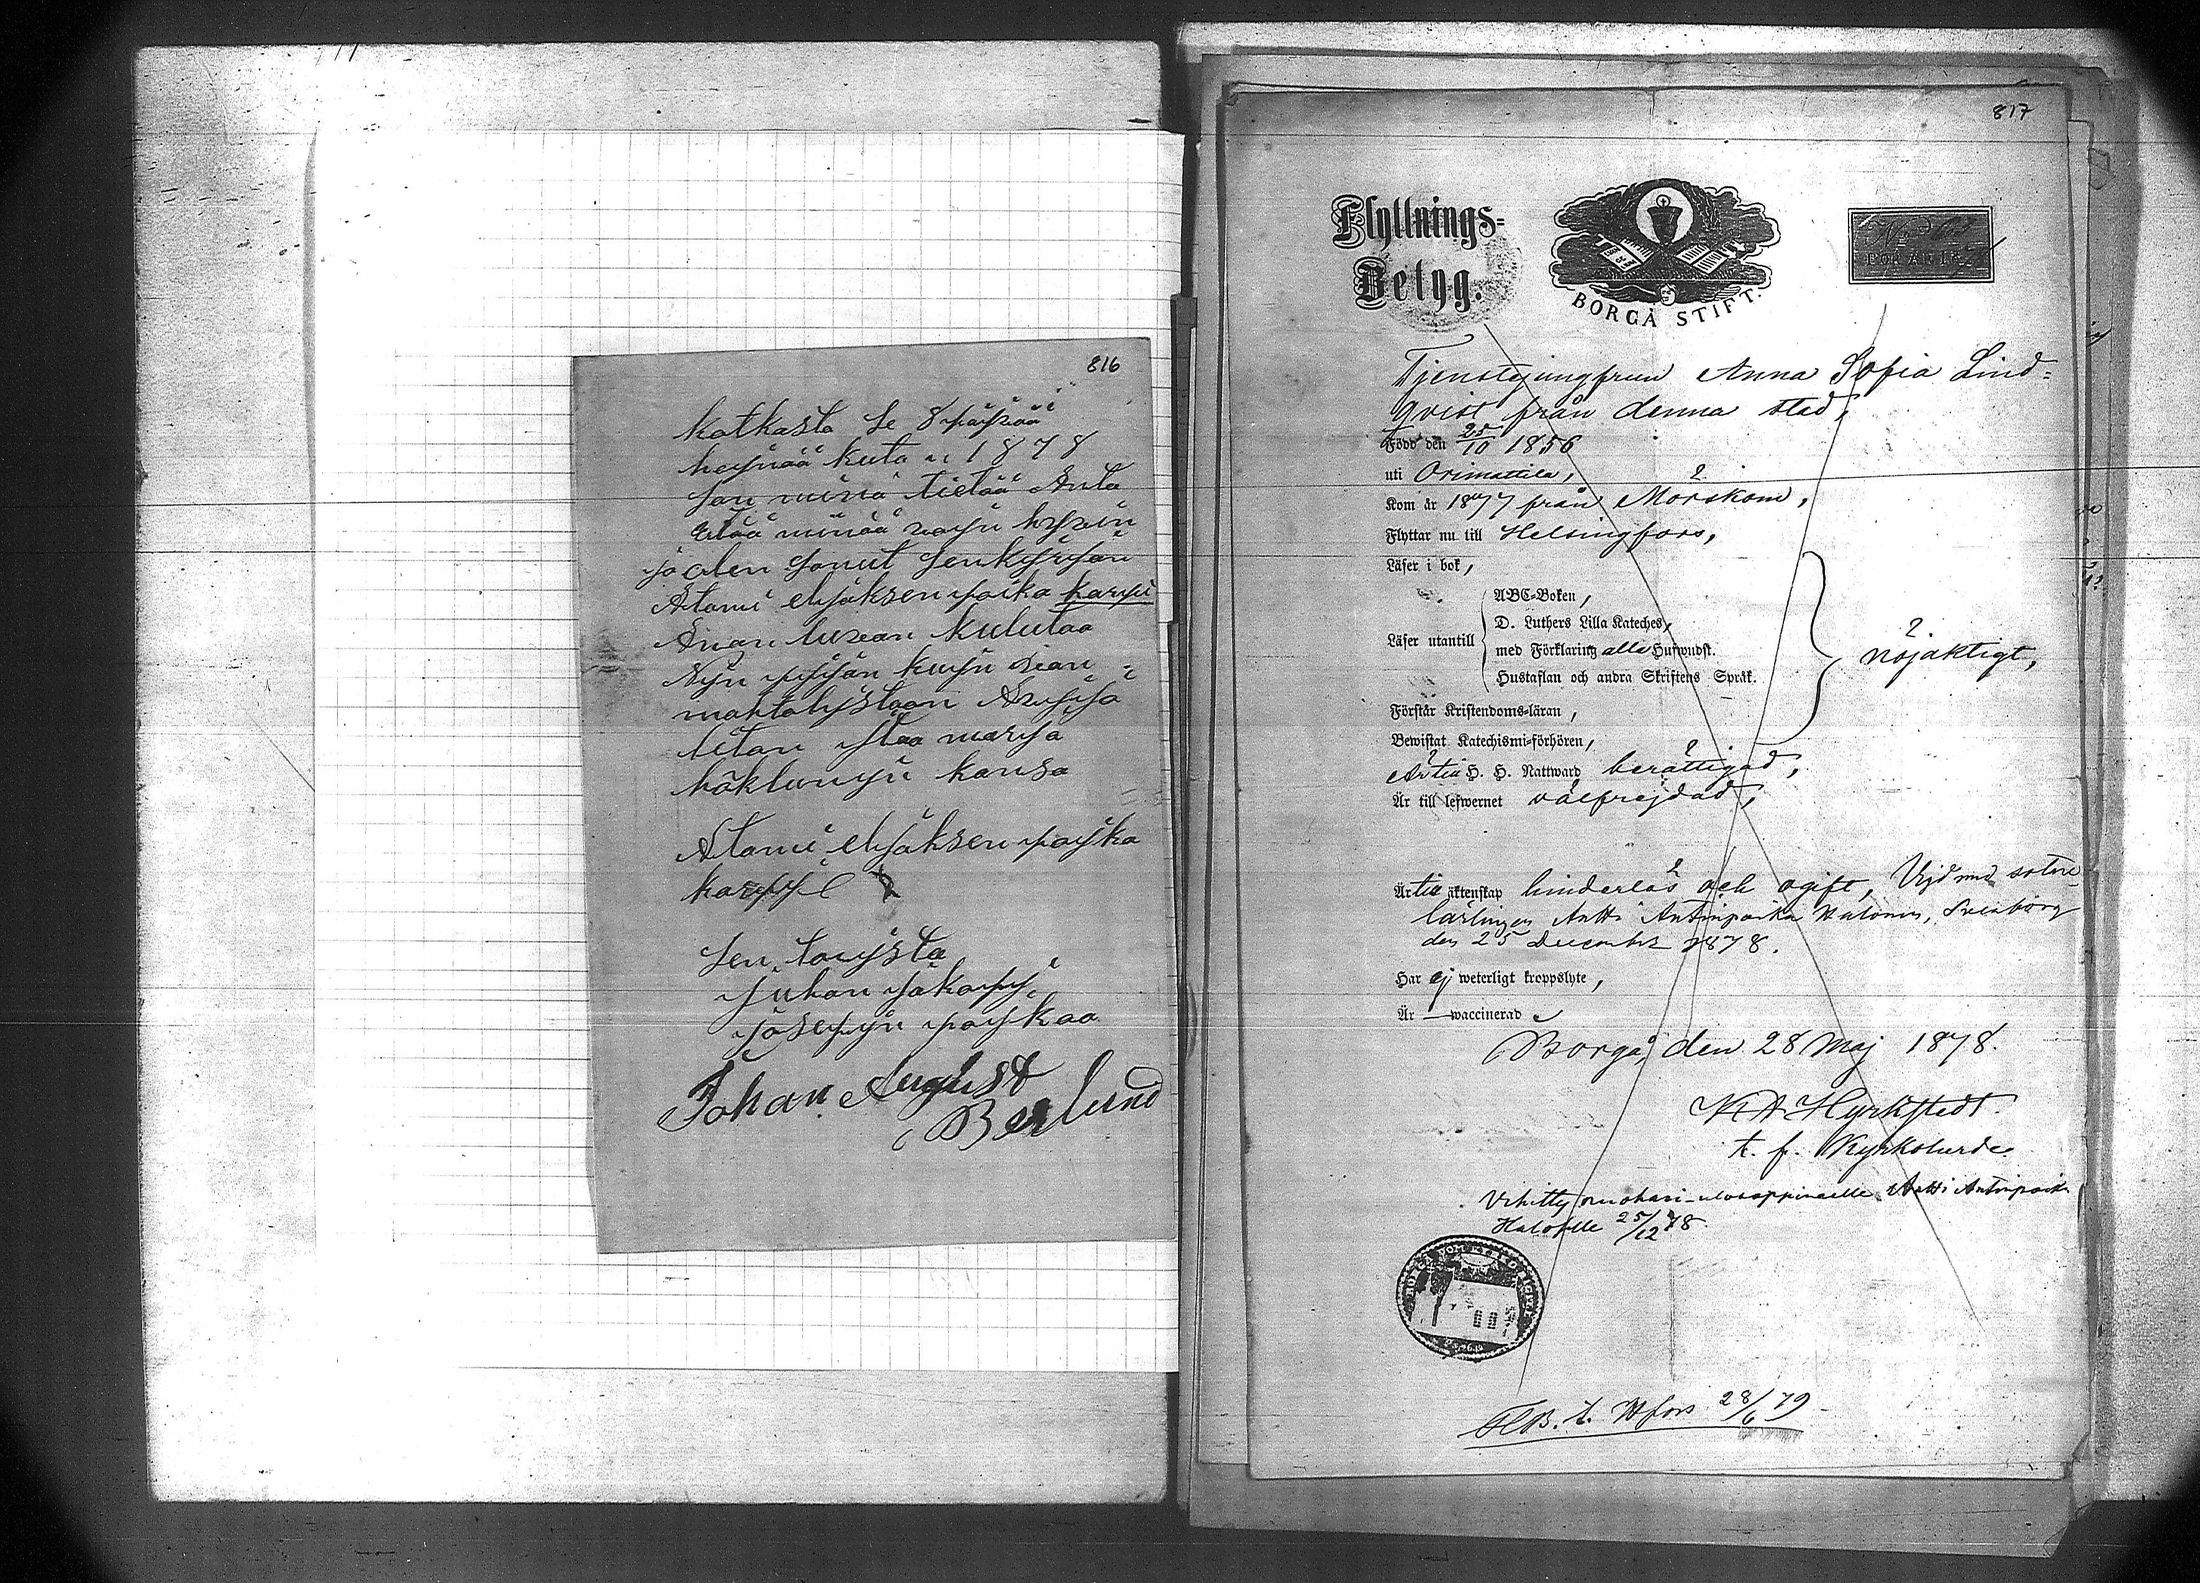 816
katkasta Se 8 päyvää
heynää kuta u 1878
San minä tietää Anta
että minää
ja olen Sanut Senkyrjan
Atami elyaksen poika karpi
Anan luvan kulutaa
Nyn
mahtalystaan
Aetan
kansa
Atami elyaksen poyka
karpyi
Sen toysta
juhan
joseppyn poykaa
Johan August
Berlund
817
Flyttnings-
Betyg.
BORGÅ STIFT.
Tjenstejungfrun Anna Sofia Lind=
qvist från denna stad,
Född den 25/10 1856
uti Orimattila,
Kom år 1877 från Mörskom,
Flyttar nu till Helsingfors,
Läser i bok,
Läser utantill
ABC-Boken,
D. Luthers Lilla Kateches,
med Förklaring alla Hufwudst.
Hustaflan och andra Skriftens Språk.
nöjaktigt,
Förstår Kristendoms-läran,
Bewistat Katechismi-förhören,
Är till H. H. Nattward berättigad,
Är till lefwernet välfrejdad,
Är till äktenskap hinderlös och ogift, Vigd med
lärlingen Antti Antinpoika Halonen, Sveaborg
den 25 December 1878.
Har ej weterligt kroppslyte,
Är — waccinerad
Borgå, den 28 Maj 1878.
K A Hyrkstedt.
t. f. Kyrkoherde.
Vihitty Antti Antinpoik
Haloselle 25/12 78.
FlB. t. Hfors 28/6 79